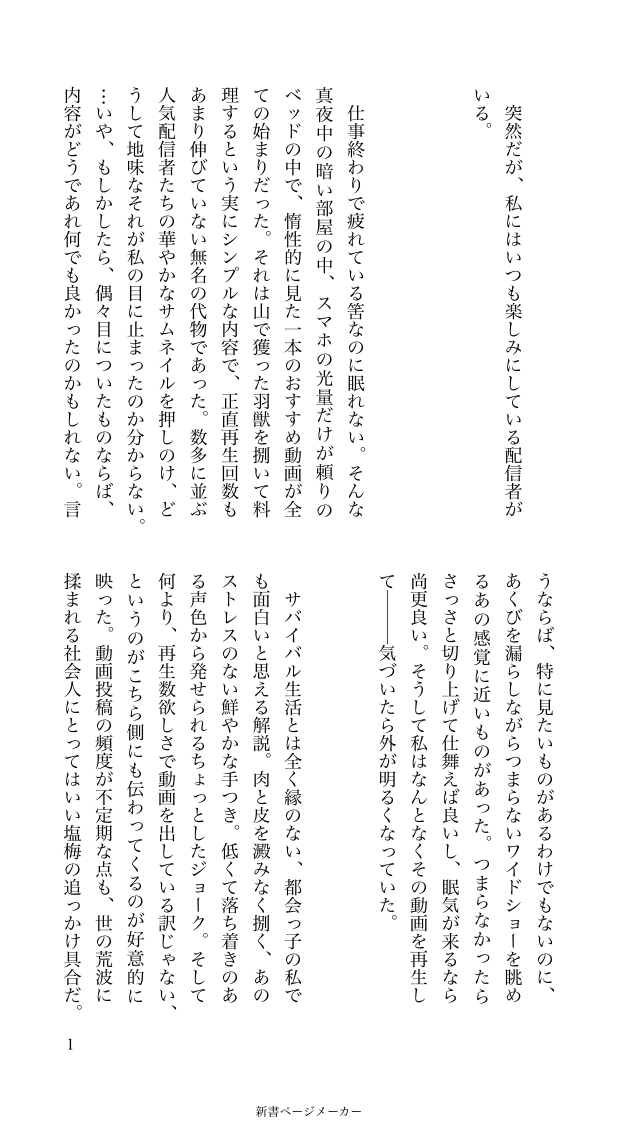 突然だが、私にはいつも楽しみにしている配信者が
いる。
仕事終わりで疲れている筈なのに眠れない。そんな
真夜中の暗い部屋の中、スマホの光量だけが頼りの
ベッドの中で、惰性的に見た一本のおすすめ動画が全
ての始まりだった。それは山で獲った羽獣を捌いて料
理するという実にシンプルな内容で、正直再生回数も
あまり伸びていない無名の代物であった。数多に並ぶ
人気配信者たちの華やかなサムネイルを押しのけ、ど
うして地味なそれが私の目に止まったのか分からない。
…いや、もしかしたら、偶々目についたものならば、
内容がどうであれ何でも良かったのかもしれない。言
うならば、特に見たいものがあるわけでもないのに、
あくびを漏らしながらつまらないワイドショーを眺め
るあの感覚に近いものがあった。つまらなかったら
さっさと切り上げて仕舞えば良いし、眠気が来るなら
尚更良い。そうして私はなんとなくその動画を再生し
て――気づいたら外が明るくなっていた。
サバイバル生活とは全く縁のない、都会っ子の私で
も面白いと思える解説。肉と皮を澱みなく捌く、あの
ストレスのない鮮やかな手つき。低くて落ち着きのあ
る声色から発せられるちょっとしたジョーク。そして
何より、再生数欲しさで動画を出している訳じゃない、
というのがこちら側にも伝わってくるのが好意的に
映った。動画投稿の頻度が不定期な点も、世の荒波に
揉まれる社会人にとってはいい塩梅の追っかけ具合だ。
1
新書ページメーカー